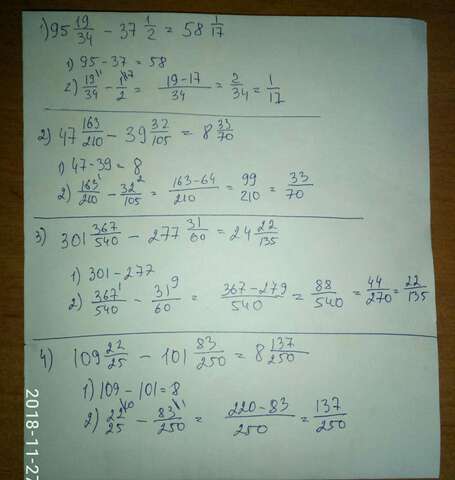 1) 95 19/34 - 37 1/2 = 58 1/17
1) 95 - 37 = 58
2) 19/34 - 1/2 = 19-17/34 = 2/34 = 1/17
2) 47 163/210 - 39 32/105 = 8 33/70
1) 47 - 39 = 8
2) 163/210 - 32/105 = 163-64/210 = 99/210 = 33/70
3) 301 367/540 - 277 31/60 = 24 22/135
1) 301 - 277
2) 367/540 - 31/60 = 367-279/540 = 88/540 = 44/270 = 22/135
4) 109 22/25 - 101 83/250 = 8 137/250
1) 109 - 101 = 8
2) 22/25 - 83/250 = 220-83/250 = 137/250
2018-11-27